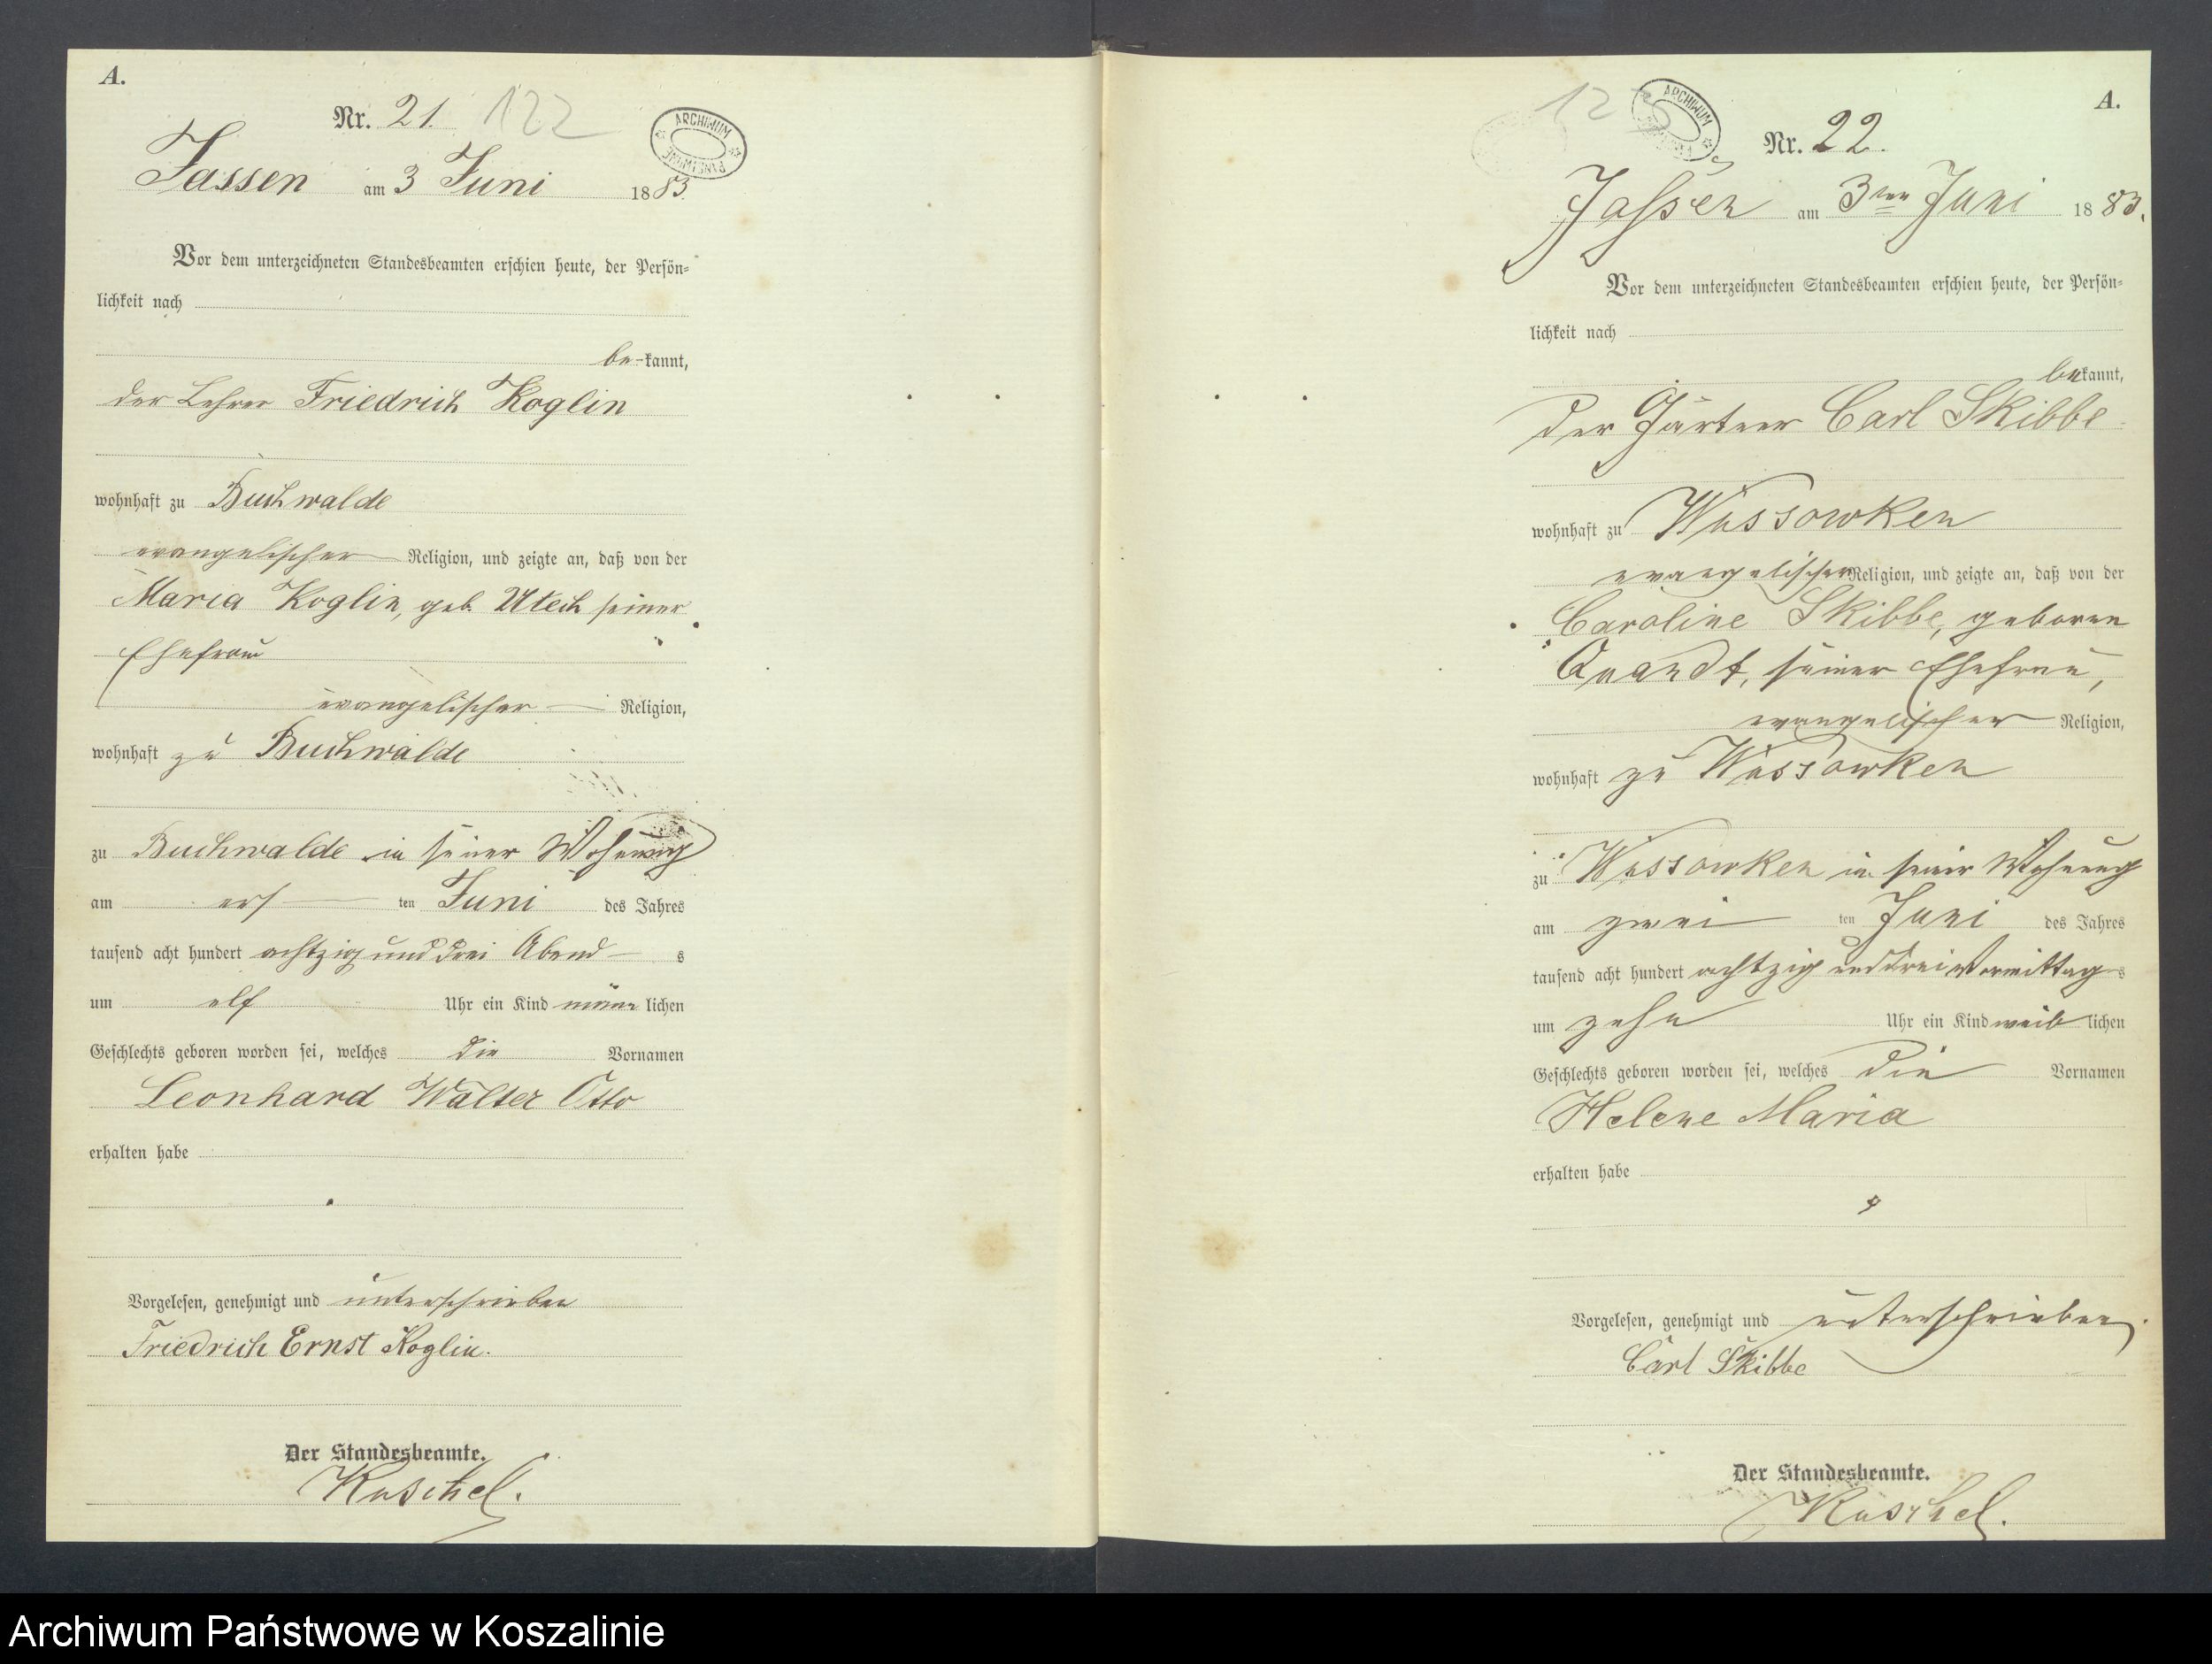 A.
Nr. 21. 122
ARCHIWUM PAŃSTWOWE
Jassen am 3 Juni 1883.
Vor dem unterzeichneten Standesbeamten erschien heute, der Persön-
lichkeit nach
be-kannt,
der Lehrer Friedrich Koglin
wohnhaft zu Buchwalde
evangelischer Religion, und zeigte an, daß von der
Maria Koglin, geb. Utech seiner
Ehefrau
evangelischer Religion,
wohnhaft zu Buchwalde
zu Buchwalde in seiner Wohnung
am ers ten Juni des Jahres
tausend acht hundert achtzig und drei Abend s
um elf Uhr ein Kind männ lichen
Geschlechts geboren worden sei, welches die Vornamen
Leonhard Walter Otto
erhalten habe
Vorgelesen, genehmigt und unterschrieben
Friedrich Ernst Koglin.
Der Standesbeamte.
Kuschel.
A.
123
ARCHIWUM
Nr. 22.
Jassen am 3ten Juni 1883.
Vor dem unterzeichneten Standesbeamten erschien heute, der Persön-
lichkeit nach
bekannt,
der Gärtner Carl Skibbe
wohnhaft zu Wussowken
evangelischer Religion, und zeigte an, daß von der
Caroline Skibbe, geboren
Quandt, seiner Ehefrau,
evangelischer Religion,
wohnhaft zu Wussowken
zu Wussowken in seiner Wohnung
am zwei ten Juni des Jahres
tausend acht hundert achtzig und drei Vormittag s
um zehn Uhr ein Kind weib lichen
Geschlechts geboren worden sei, welches die Vornamen
Helene Maria
erhalten habe
Vorgelesen, genehmigt und unterschrieben.
Carl Skibbe
Der Standesbeamte.
Kuschel.
Archiwum Państwowe w Koszalinie